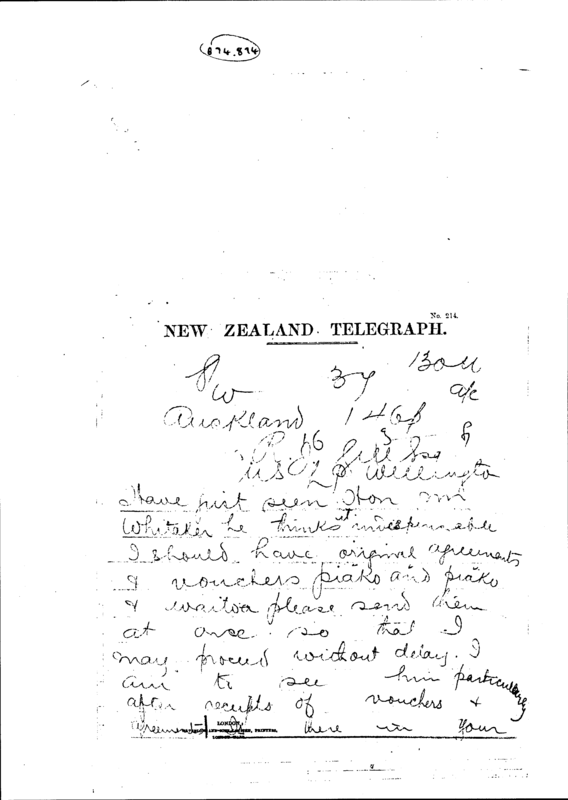 874.874
No. 214.
NEW ZEALAND TELEGRAPH.
W 37
a/c
Auckland 146
R Gill Esq
Wellington
Have just seen Hon Mr
Whitaker he thinks it indispensable
I should have original agreements
& vouchers piako and piako
& waitoa please send them
at once so that I
may proceed without delay. I
am to see him particularly
after receipts of vouchers &
agreements there in your
LONDON
PRINTERS,